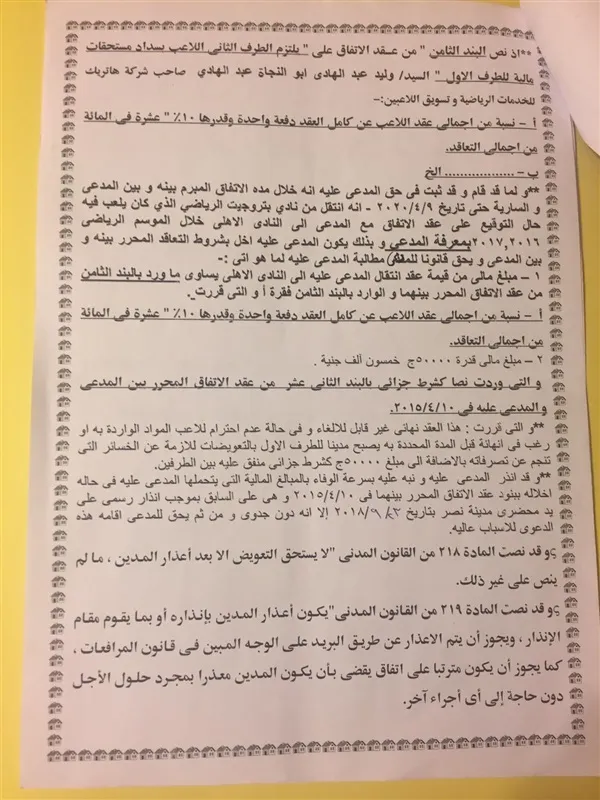 **اذ نص البند الثامن " من عقد الاتفاق على " يلتزم الطرف الثانى اللاعب بسداد مستحقات
مالية للطرف الاول " السيد/ وليد عبد الهادى ابو النجاة عبد الهادي صاحب شركة هاتريك
للخدمات الرياضية و تسويق اللاعبين:-
أ – نسبة من اجمالى عقد اللاعب عن كامل العقد دفعة واحدة وقدرها ١٠٪ " عشرة فى المائة
من اجمالى التعاقد.
ب – .................. الخ
**و لما قد قام و قد ثبت فى حق المدعى عليه انه خلال مده الاتفاق المبرم بينه و بين المدعى
و السارية حتى تاريخ ٢٠٢٠/٤/٩ – انه انتقل من نادي بتروجيت الرياضي الذي كان يلعب فيه
حال التوقيع على عقد الاتفاق مع المدعى الى النادى الاهلى خلال الموسم الرياضى
٢٠١٧,٢٠١٦ بمعرفة المدعي و بذلك يكون المدعى عليه اخل بشروط التعاقد المحرر بينه و
بين المدعى و يحق قانونا مطالبة المدعى عليه لما هو اتى :-
١ – مبلغ مالى من قيمة عقد انتقال المدعى عليه الى النادى الاهلى يساوى ما ورد بالبند الثامن
من عقد الاتفاق المحرر بينهما و الوارد بالبند الثامن فقرة أ و التى قررت.
أ – نسبة من اجمالى عقد اللاعب عن كامل العقد دفعة واحدة وقدرها ١٠٪ " عشرة فى المائة
من اجمالى التعاقد.
٢ – مبلغ مالى قدرة ٥٠٠٠٠ج خمسون ألف جنية .
و التى وردت نصا كشرط جزائي بالبند الثانى عشر من عقد الاتفاق المحرر بين المدعى
و المدعى عليه فى ٢٠١٥/٤/١٠.
**و التى قررت : هذا العقد نهائى غير قابل للالغاء و فى حالة عدم احترام للاعب المواد الواردة به او
رغب فى انهائة قبل المدة المحددة به يصبح مدينا للطرف الاول بالتعويضات للازمة عن الخسائر التى
تنجم عن تصرفاته بالاضافة الى مبلغ ٥٠٠٠٠ج كشرط جزائى متفق عليه بين الطرفين.
**و قد انذر المدعى عليه و نبه عليه بسرعة الوفاء بالمبالغ المالية التى يتحملها المدعى عليه فى حاله
اخلاله ببنود عقد الاتفاق المحرر بينهما فى ٢٠١٥/٤/١٠ و هى على السابق بموجب انذار رسمى على
يد محضرى مدينة نصر بتاريخ ٢٠١٨/٩/٢٣ إلا انه دون جدوى و من ثم يحق للمدعى اقامه هذة
الدعوى للاسباب عاليه.
و قد نصت المادة ٢١٨ من القانون المدنى "لا يستحق التعويض الا بعد أعذار المدين ، ما لم
ينص على غير ذلك.
و قد نصت المادة ٢١٩ من القانون المدنى"يكون أعذار المدين بإنذاره أو بما يقوم مقام
الإنذار ، ويجوز أن يتم الاعذار عن طريق البريد على الوجه المبين فى قانون المرافعات ،
كما يجوز أن يكون مترتبا على اتفاق يقضى بأن يكون المدين معذرا بمجرد حلول الأجل
دون حاجة إلى أى أجراء آخر.